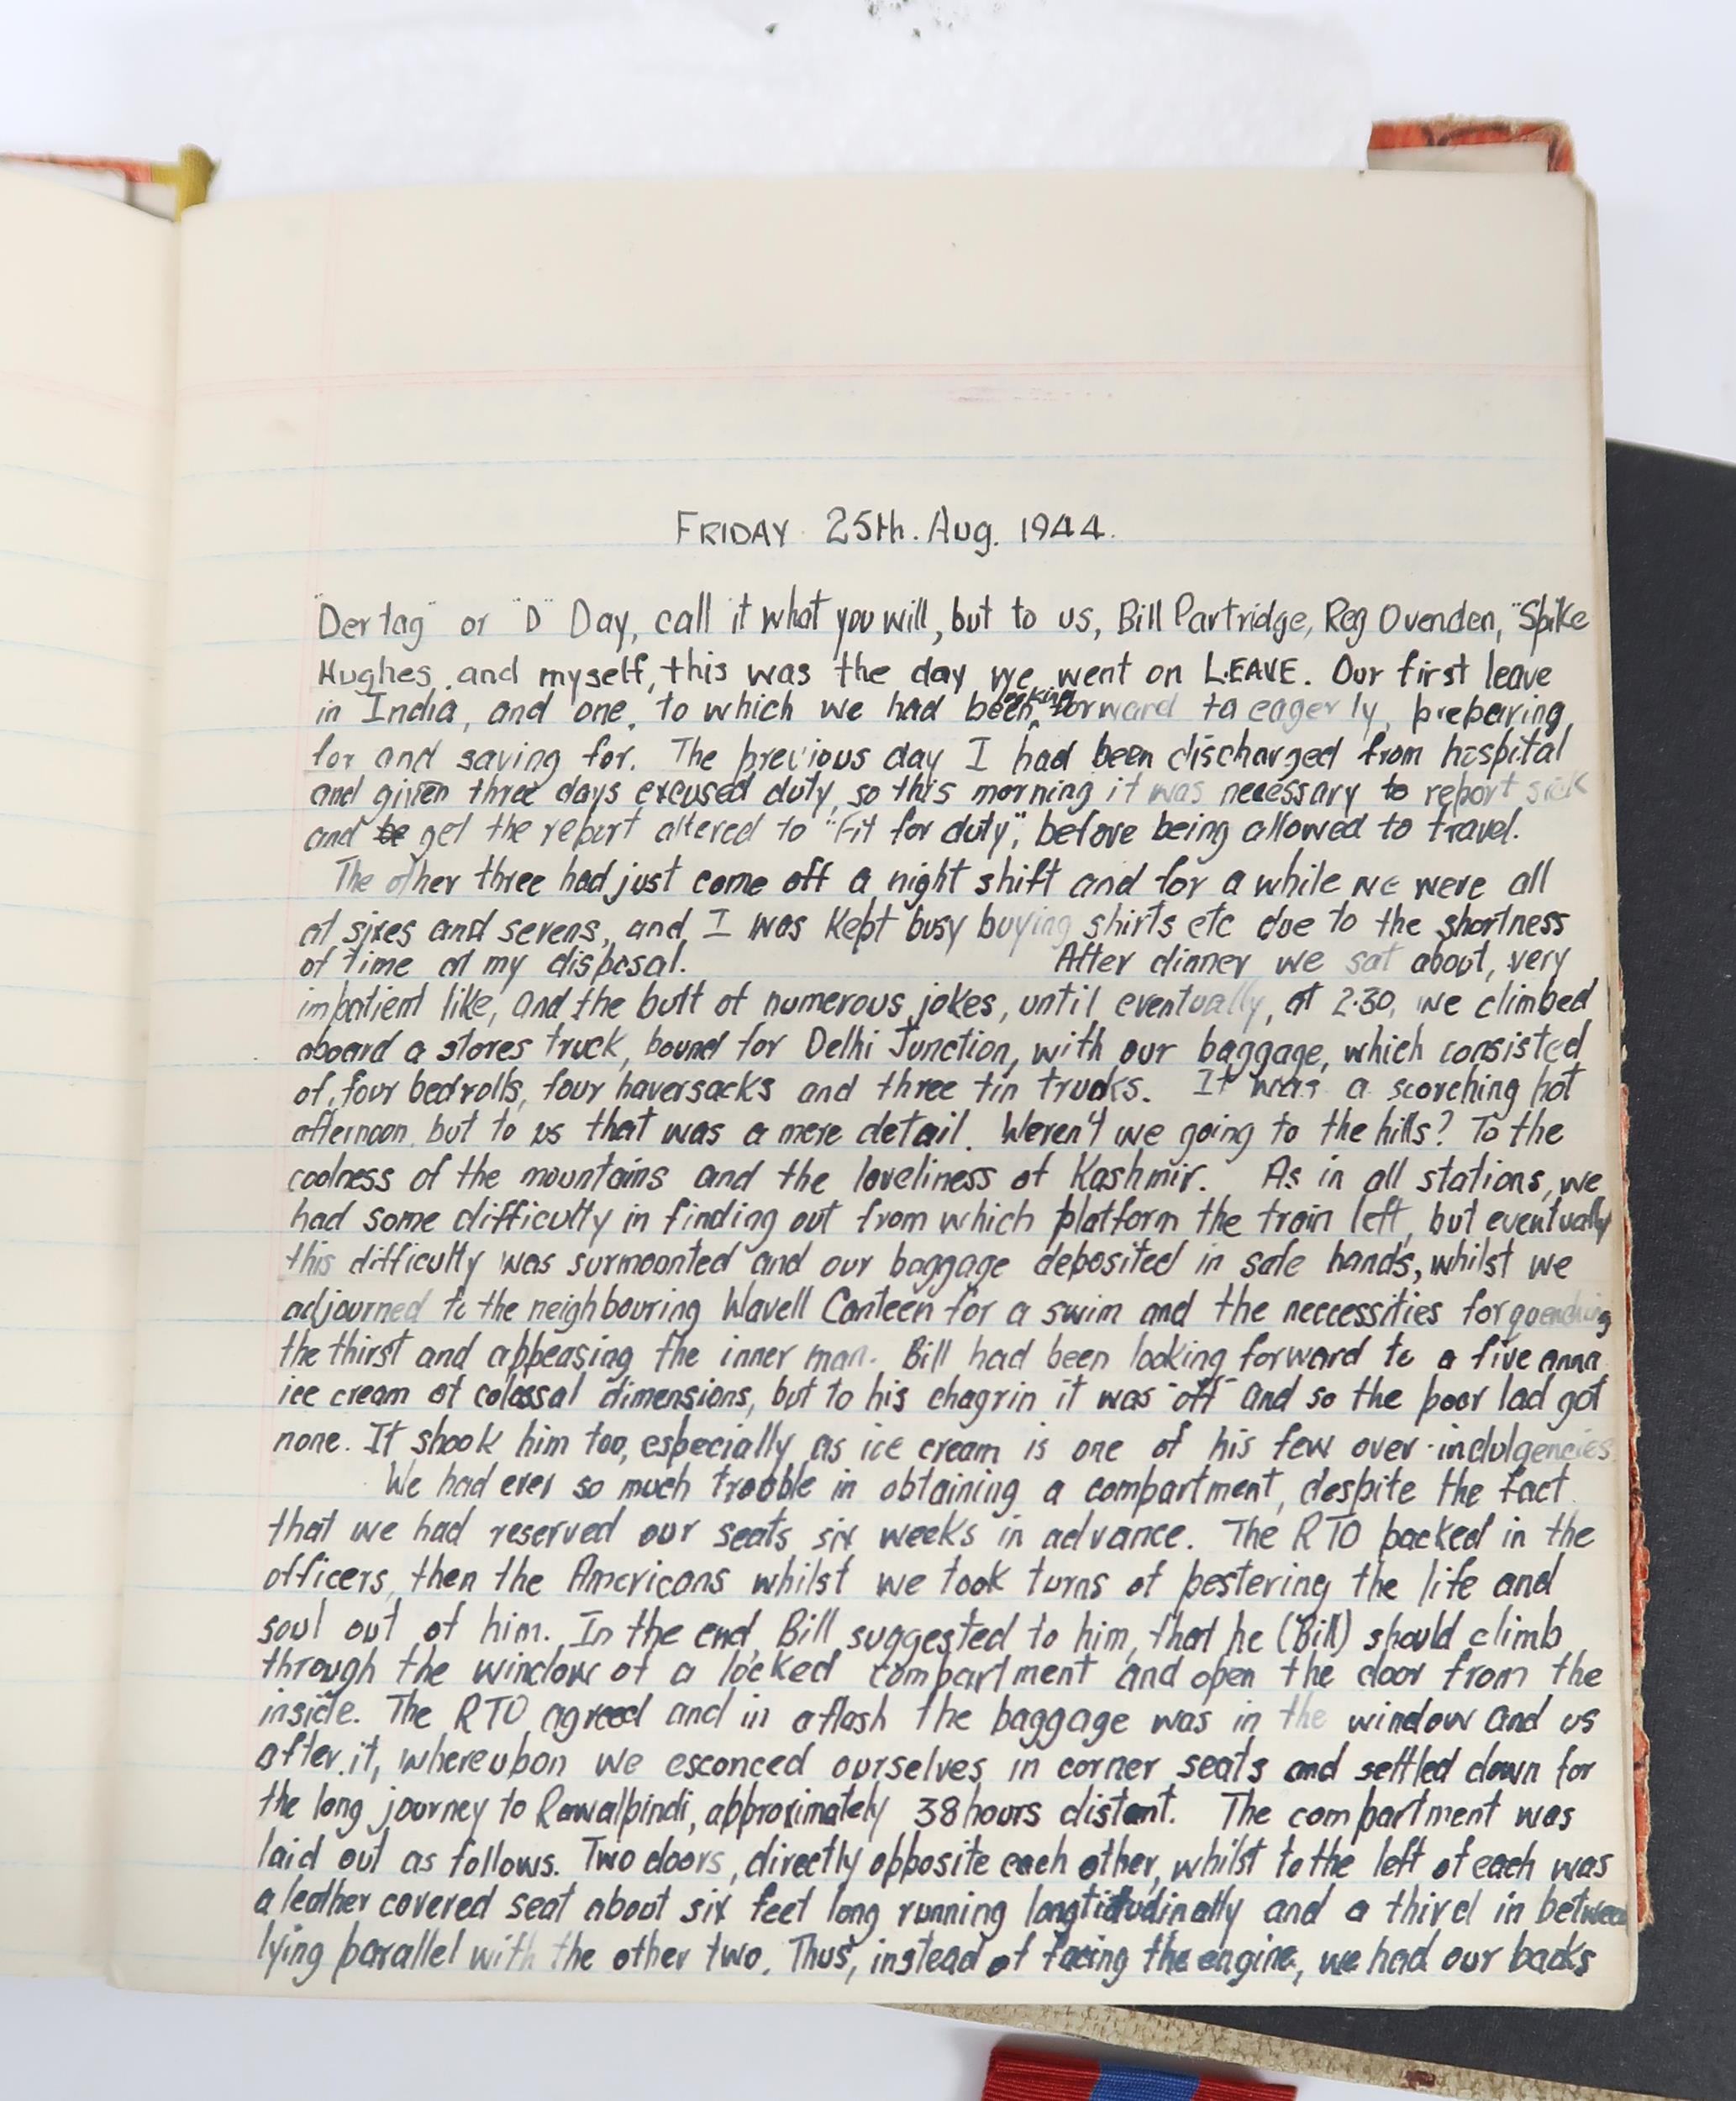 FRIDAY 25th. Aug. 1944.
"Der tag" or "D" Day, call it what you will, but to us, Bill Partridge, Reg Ovenden, "Spike
Hughes and myself, this was the day we went on LEAVE. Our first leave
in India, and one, to which we had been looking forward to eagerly, preparing
for and saving for. The previous day I had been discharged from hospital
and given three days excused duty, so this morning it was necessary to report sick
and be get the report altered to "Fit for duty", before being allowed to travel.
The other three had just come off a night shift and for a while we were all
at sixes and sevens, and I was kept busy buying shirts etc due to the shortness
of time at my disposal. After dinner we sat about, very
impatient like, and the butt of numerous jokes, until eventually, at 2.30, we climbed
aboard a stores truck, bound for Delhi Junction, with our baggage, which consisted
of, four bedrolls, four haversacks and three tin trucks. It was a scorching hot
afternoon, but to us that was a mere detail. Weren't we going to the hills? To the
coolness of the mountains and the loveliness of Kashmir. As in all stations, we
had some difficulty in finding out from which platform the train left, but eventually
this difficulty was surmounted and our baggage deposited in safe hands, whilst we
adjourned to the neighbouring Wavell Canteen for a swim and the neccessities for quenching
the thirst and appeasing the inner man. Bill had been looking forward to a five anna
ice cream of colossal dimensions, but to his chagrin it was "off" and so the poor lad got
none. It shook him too, especially as ice cream is one of his few over-indulgencies.
We had ever so much trouble in obtaining a compartment, despite the fact
that we had reserved our seats six weeks in advance. The RTO packed in the
officers, then the Americans whilst we took turns at pestering the life and
soul out of him. In the end, Bill suggested to him, that he (Bill) should climb
through the window of a locked compartment and open the door from the
inside. The RTO agreed and in a flash the baggage was in the window and us
after it, whereupon we esconced ourselves in corner seats and settled down for
the long journey to Rawalpindi, approximately 38 hours distant. The compartment was
laid out as follows. Two doors, directly opposite each other, whilst to the left of each was
a leather covered seat about six feet long running longtitudinally and a third in between
lying parallel with the other two. Thus, instead of facing the engine, we had our backs